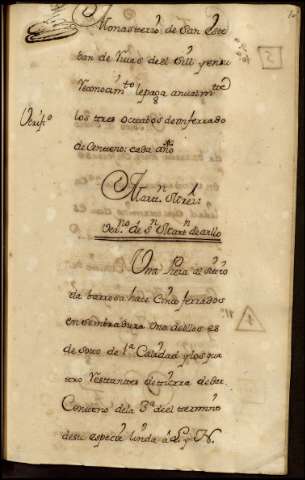 Monasterio de San Este
ban de Rivas de el Sill y en su
reconocim.to le paga anualm.te
los tres octabos de un ferrado
de Centeno: cada año
Martn
Vec.no de Sn Martn
Una Pieza al
da barrosa hace Cinco ferrados
en sembradura Uno de ellos es
de soto de 1.a Calidad y los qua
tro restantes de tierra de
Centeno de la 3.a de el termino
de su especie linda a L y N.
5